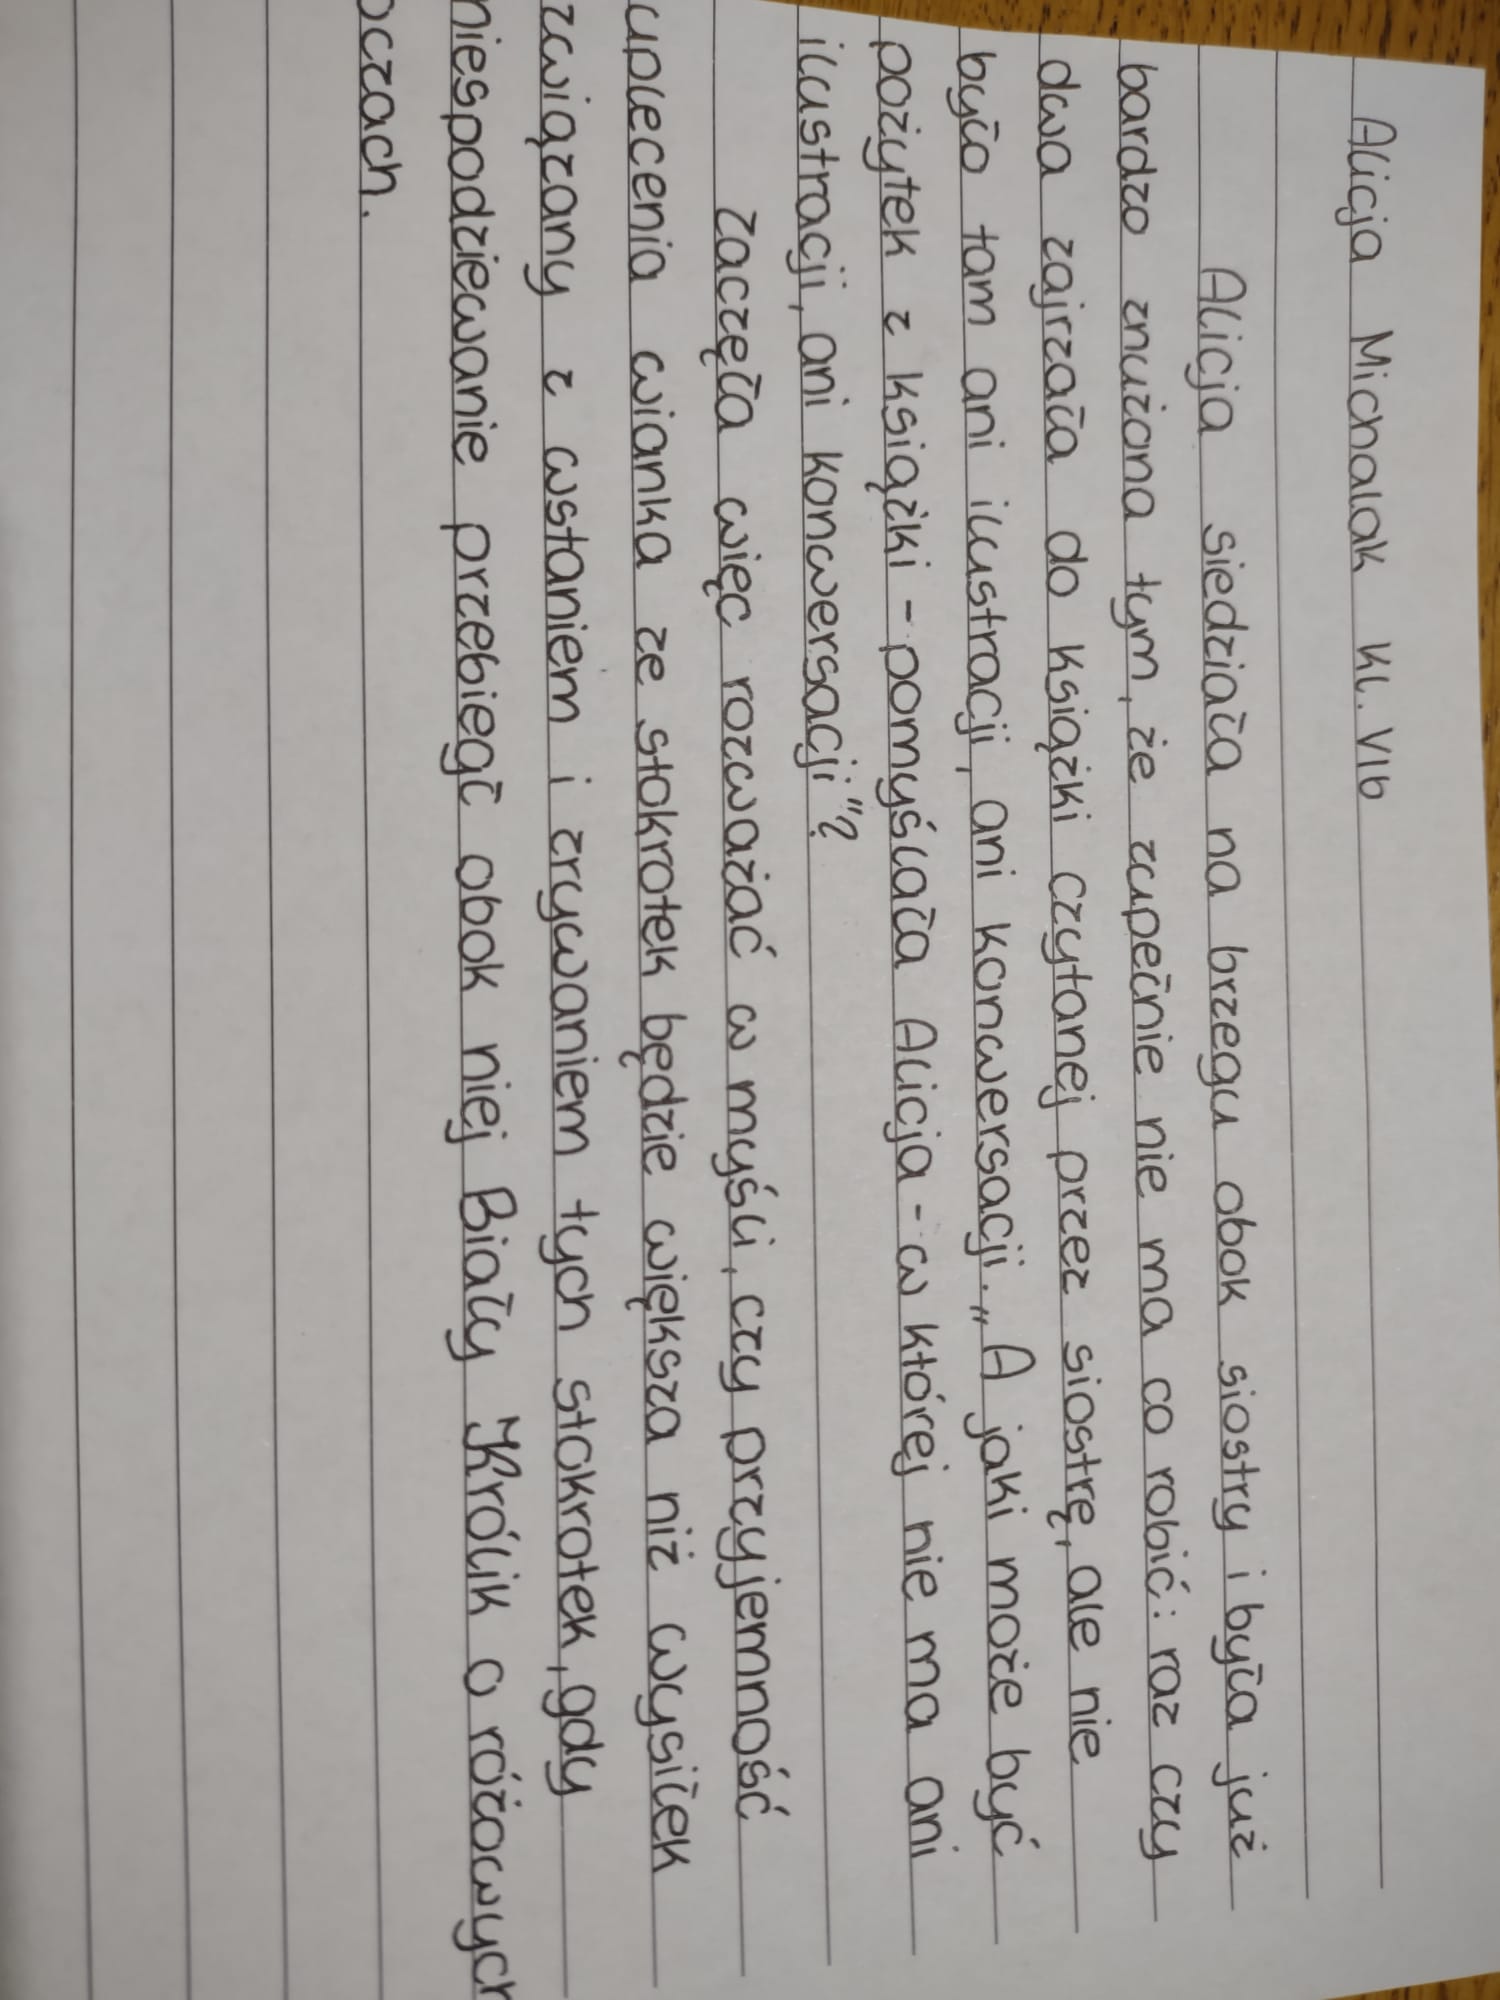 Alicja Michalak Kl. VIb
Alicja siedziała na brzegu obok siostry i była już
bardzo znużona tym, że zupełnie nie ma co robić: raz czy
dwa zajrzała do książki czytanej przez siostrę, ale nie
było tam ani ilustracji, ani konwersacji. „A jaki może być
pożytek z książki - pomyślała Alicja - w której nie ma ani
ilustracji, ani konwersacji"?
Zaczęła więc rozważać w myśli, czy przyjemność
uplecenia wianka ze stokrotek będzie większa niż wysiłek
związany z wstaniem i zrywaniem tych stokrotek, gdy
niespodziewanie przebiegł obok niej Biały Królik o różowych
oczach.